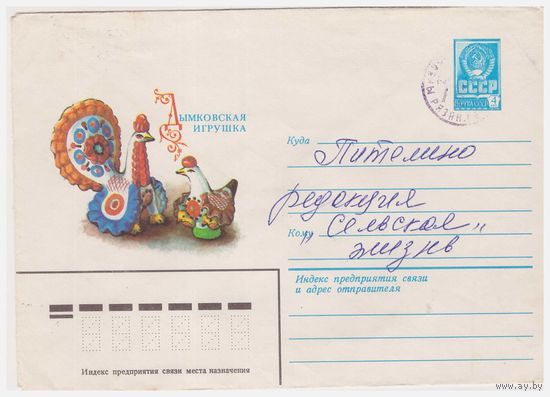 Дымковская
игрушка
СССР
ПОЧТА СССР
4
Куда
Питомино
редакция
Кому
„Сельская"
жизнь
Индекс предприятия связи
и адрес отправителя
Индекс предприятия связи места назначения
www.ay.by